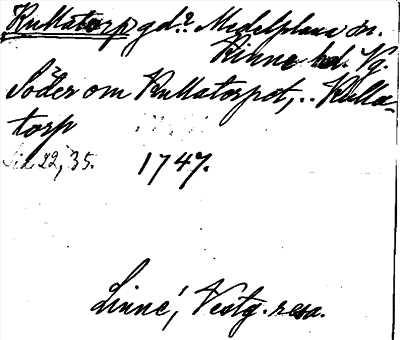 Kullatorp gd? Medelplana sn.
Kinne hd. Vg.
Söder om Kullatorpet,.. Kulla-
torp
Sid. 22, 35. 1747.
Linné, Västg. resa.